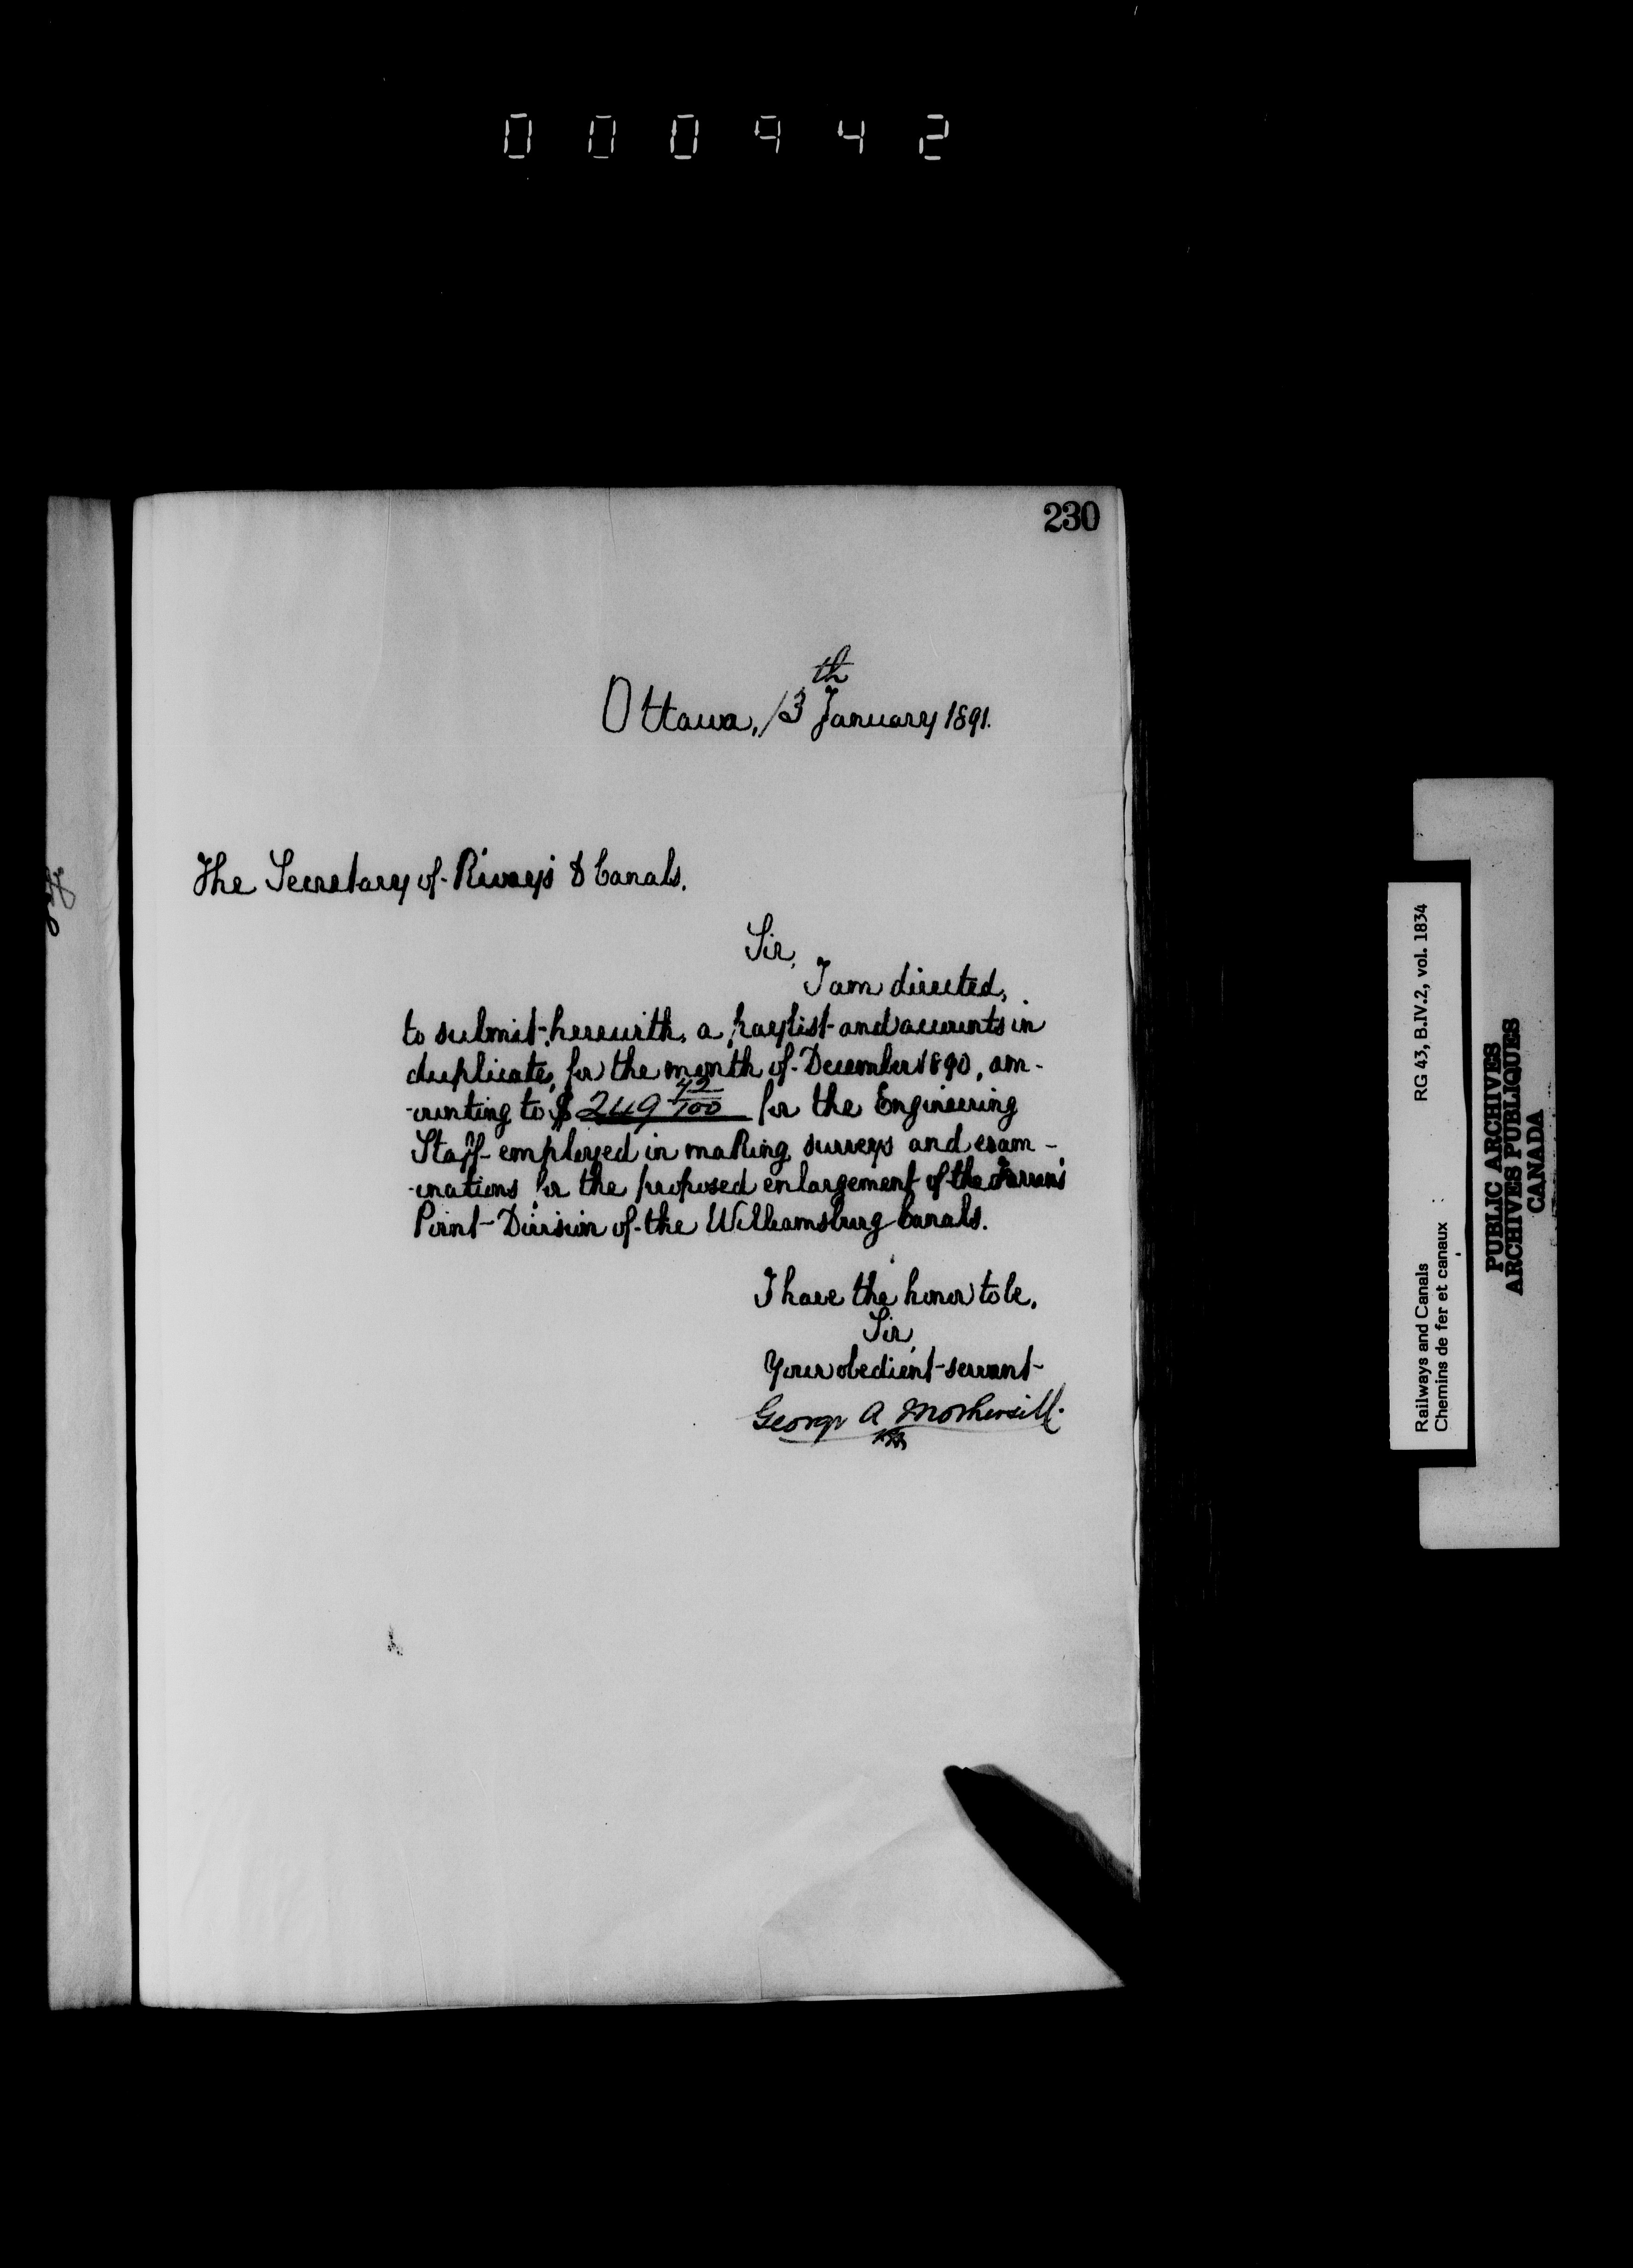 000942
230
Ottawa, 13th January 1891.
The Secretary of Rlways & Canals.
Sir,
I am directed,
to submit herewith, a paylist and accounts in
duplicate, for the month of December 1890, am-
-ounting to $ 249 42/100 for the Engineering
Staff employed in making surveys and exam-
-inations for the proposed enlargement of the Farran's
Point Division of the Williamsburg Canals.
I have the honor to be,
Sir,
Your obedient servant
George A Mothersill.
Railways and Canals
Chemins de fer et canaux
RG 43, B.IV.2, vol. 1834
PUBLIC ARCHIVES
ARCHIVES PUBLIQUES
CANADA